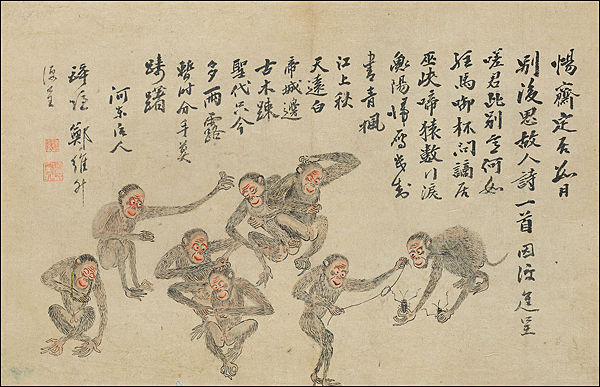 惕齋定居日
別後思故人詩一首因進呈
嗟君此別意何如
駐馬啣杯問謫居
巫峽啼猿數行淚
衡陽歸雁幾封
書青楓
江上秋
天遠白
帝城邊
古木疎
聖代只今
多雨露
暫時分手莫
躊躇
河東人
鄭維升
呈